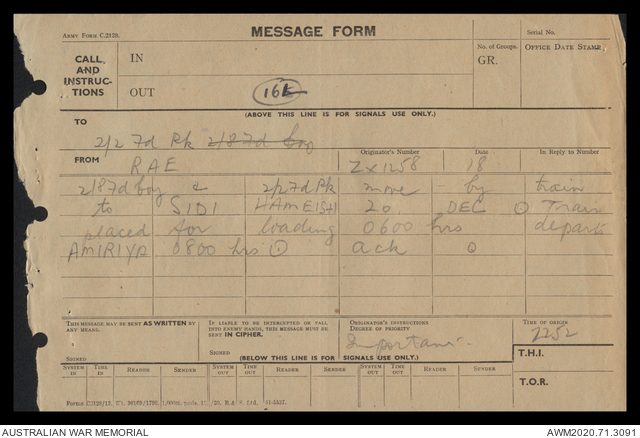 ARMY FORM C.2128.
MESSAGE FORM
Serial No.
CALL, AND INSTRUC-TIONS
IN
OUT
16L
No. of Groups.
GR.
OFFICE DATE STAMP.
(ABOVE THIS LINE IS FOR SIGNALS USE ONLY.)
TO
2/2 Fd Pk 2/8 Fd Coy
FROM
RAE
Originator's Number
ZX1258
Date
18
In Reply to Number
2/8 Fd coy & 2/2 Fd Pk move by train
to SIDI HAMEISH 20 DEC ⊙ Train
placed for loading 0600 hrs departs
AMIRIYA 0800 hrs ⊙ ack ⊙
THIS MESSAGE MAY BE SENT AS WRITTEN BY ANY MEANS.
SIGNED
IF LIABLE TO BE INTERCEPTED OR FALL INTO ENEMY HANDS, THIS MESSAGE MUST BE SENT IN CIPHER.
SIGNED
ORIGINATOR'S INSTRUCTIONS
DEGREE OF PRIORITY
Important
TIME OF ORIGIN
2252
(BELOW THIS LINE IS FOR SIGNALS USE ONLY.)
T.H.I.
SYSTEM IN
TIME IN
READER
SENDER
SYSTEM OUT
TIME OUT
READER
SENDER
SYSTEM OUT
TIME OUT
READER
SENDER
T.O.R.
AUSTRALIAN WAR MEMORIAL
AWM2020.71.3091